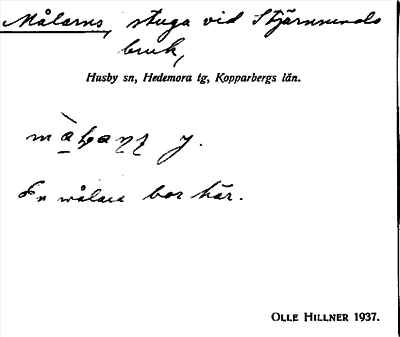 Målarns, stuga vid Stjärnsunds
bruk,
Husby sn, Hedemora tg, Kopparbergs län.
En målare bor här.
OLLE HILLNER 1937.